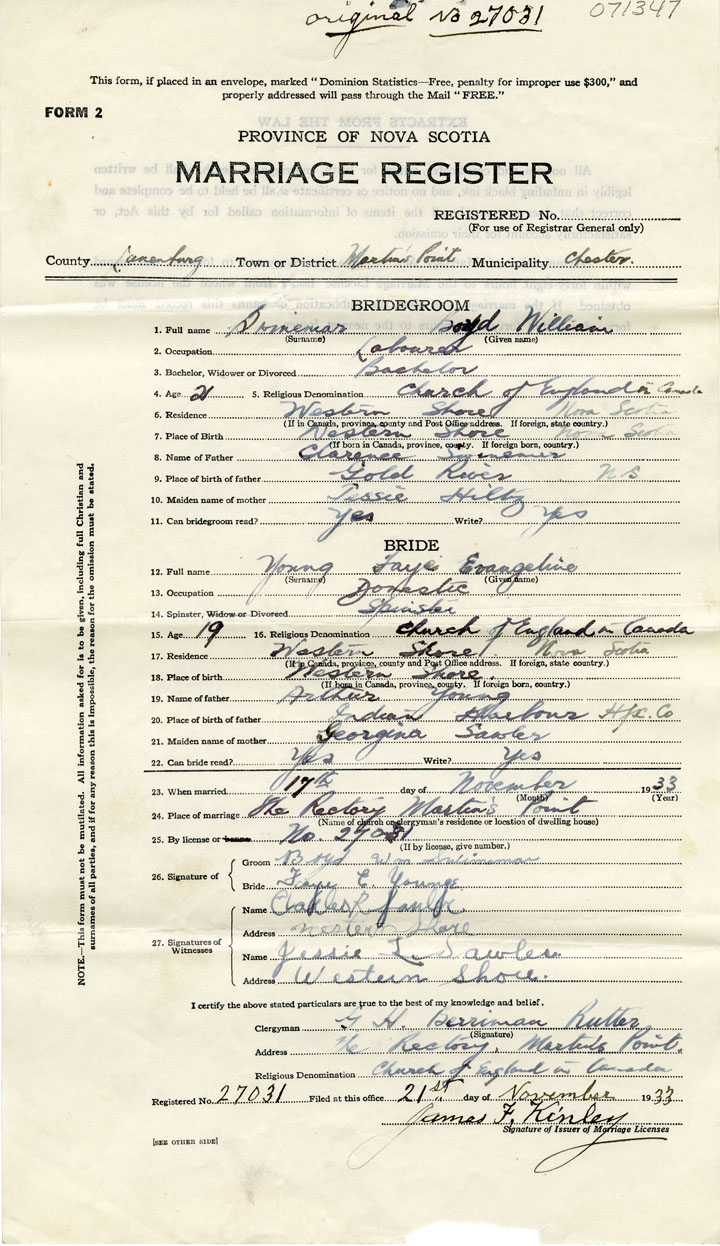 original No 27031
071347
This form, if placed in an envelope, marked "Dominion Statistics—Free, penalty for improper use $300," and
properly addressed will pass through the Mail "FREE."
FORM 2
PROVINCE OF NOVA SCOTIA
MARRIAGE REGISTER
REGISTERED No.
(For use of Registrar General only)
County Lunenburg Town or District Martin's Point Municipality Chester.
BRIDEGROOM
1. Full name Boyd William
(Surname) (Given name)
2. Occupation Labourer
3. Bachelor, Widower or Divorced Bachelor
4. Age 21 5. Religious Denomination Church of England in Canada
6. Residence Western Shore Nova Scotia
(If in Canada, province, county and Post Office address. If foreign, state country.)
7. Place of Birth Western Shore Nova Scotia
(If born in Canada, province, county. If foreign born, country.)
8. Name of Father Clarence Swinemer
9. Place of birth of father Gold River N S
10. Maiden name of mother Jessie Hiltz
11. Can bridegroom read? Yes Write? Yes
BRIDE
12. Full name Young Faye Evangeline
(Surname) (Given name)
13. Occupation Domestic
14. Spinster, Widow or Divorced Spinster
15. Age 19 16. Religious Denomination Church of England in Canada
17. Residence Western Shore Nova Scotia
(If in Canada, province, county and Post Office address. If foreign, state country.)
18. Place of birth Western Shore.
(If born in Canada, province, county. If foreign born, country.)
19. Name of father Arthur Young
20. Place of birth of father Indian Harbour Hfx. Co
21. Maiden name of mother Georgina Sawler
22. Can bride read? Yes Write? Yes
23. When married 17th day of November 1933
(Month) (Year)
24. Place of marriage The Rectory Martin's Point
(Name of church or clergyman's residence or location of dwelling house)
25. By license or banns No. 27031
(If by license, give number.)
26. Signature of
Groom Boyd Wm Swinemar
Bride Faye E. Young
27. Signatures of Witnesses
Name
Address Western Shore
Name Jessie L. Sawler
Address Western Shore.
I certify the above stated particulars are true to the best of my knowledge and belief.
Clergyman G. H. Berriman Rutter
(Signature)
Address The Rectory, Martin's Point.
Religious Denomination Church of England in Canada
Registered No. 27031 Filed at this office 21st day of November 1933
James F. Kinley
Signature of Issuer of Marriage Licenses
[SEE OTHER SIDE]
NOTE.—This form must not be mutilated. All information asked for is to be given, including full Christian and
surnames of all parties, and if for any reason this is impossible, the reason for the omission must be stated.